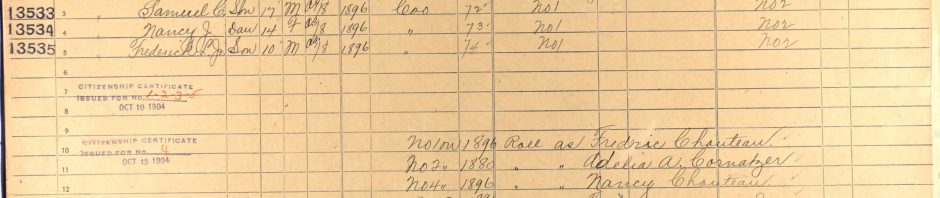 13533 3 Samuel C. Son 17 M 1/8 1896 Coo 72 No1 No2
13534 4 Nancy J. Dau 14 F 1/8 1896 " 73 No1 No2
13535 5 Frederick Jr Son 10 M 1/8 1896 " 74 No1 No2
6
7 CITIZENSHIP CERTIFICATE
ISSUED FOR NO. 1-2-3-5
8 OCT 10 1904
9 CITIZENSHIP CERTIFICATE
10 ISSUED FOR NO. 4
OCT 15 1904
No1 on 1896 Roll as Fredric Chouteau.
11 No2 " 1880 " " Adelia A. Cornatzer
12 No4 " 1896 " " Nancy Chouteau.